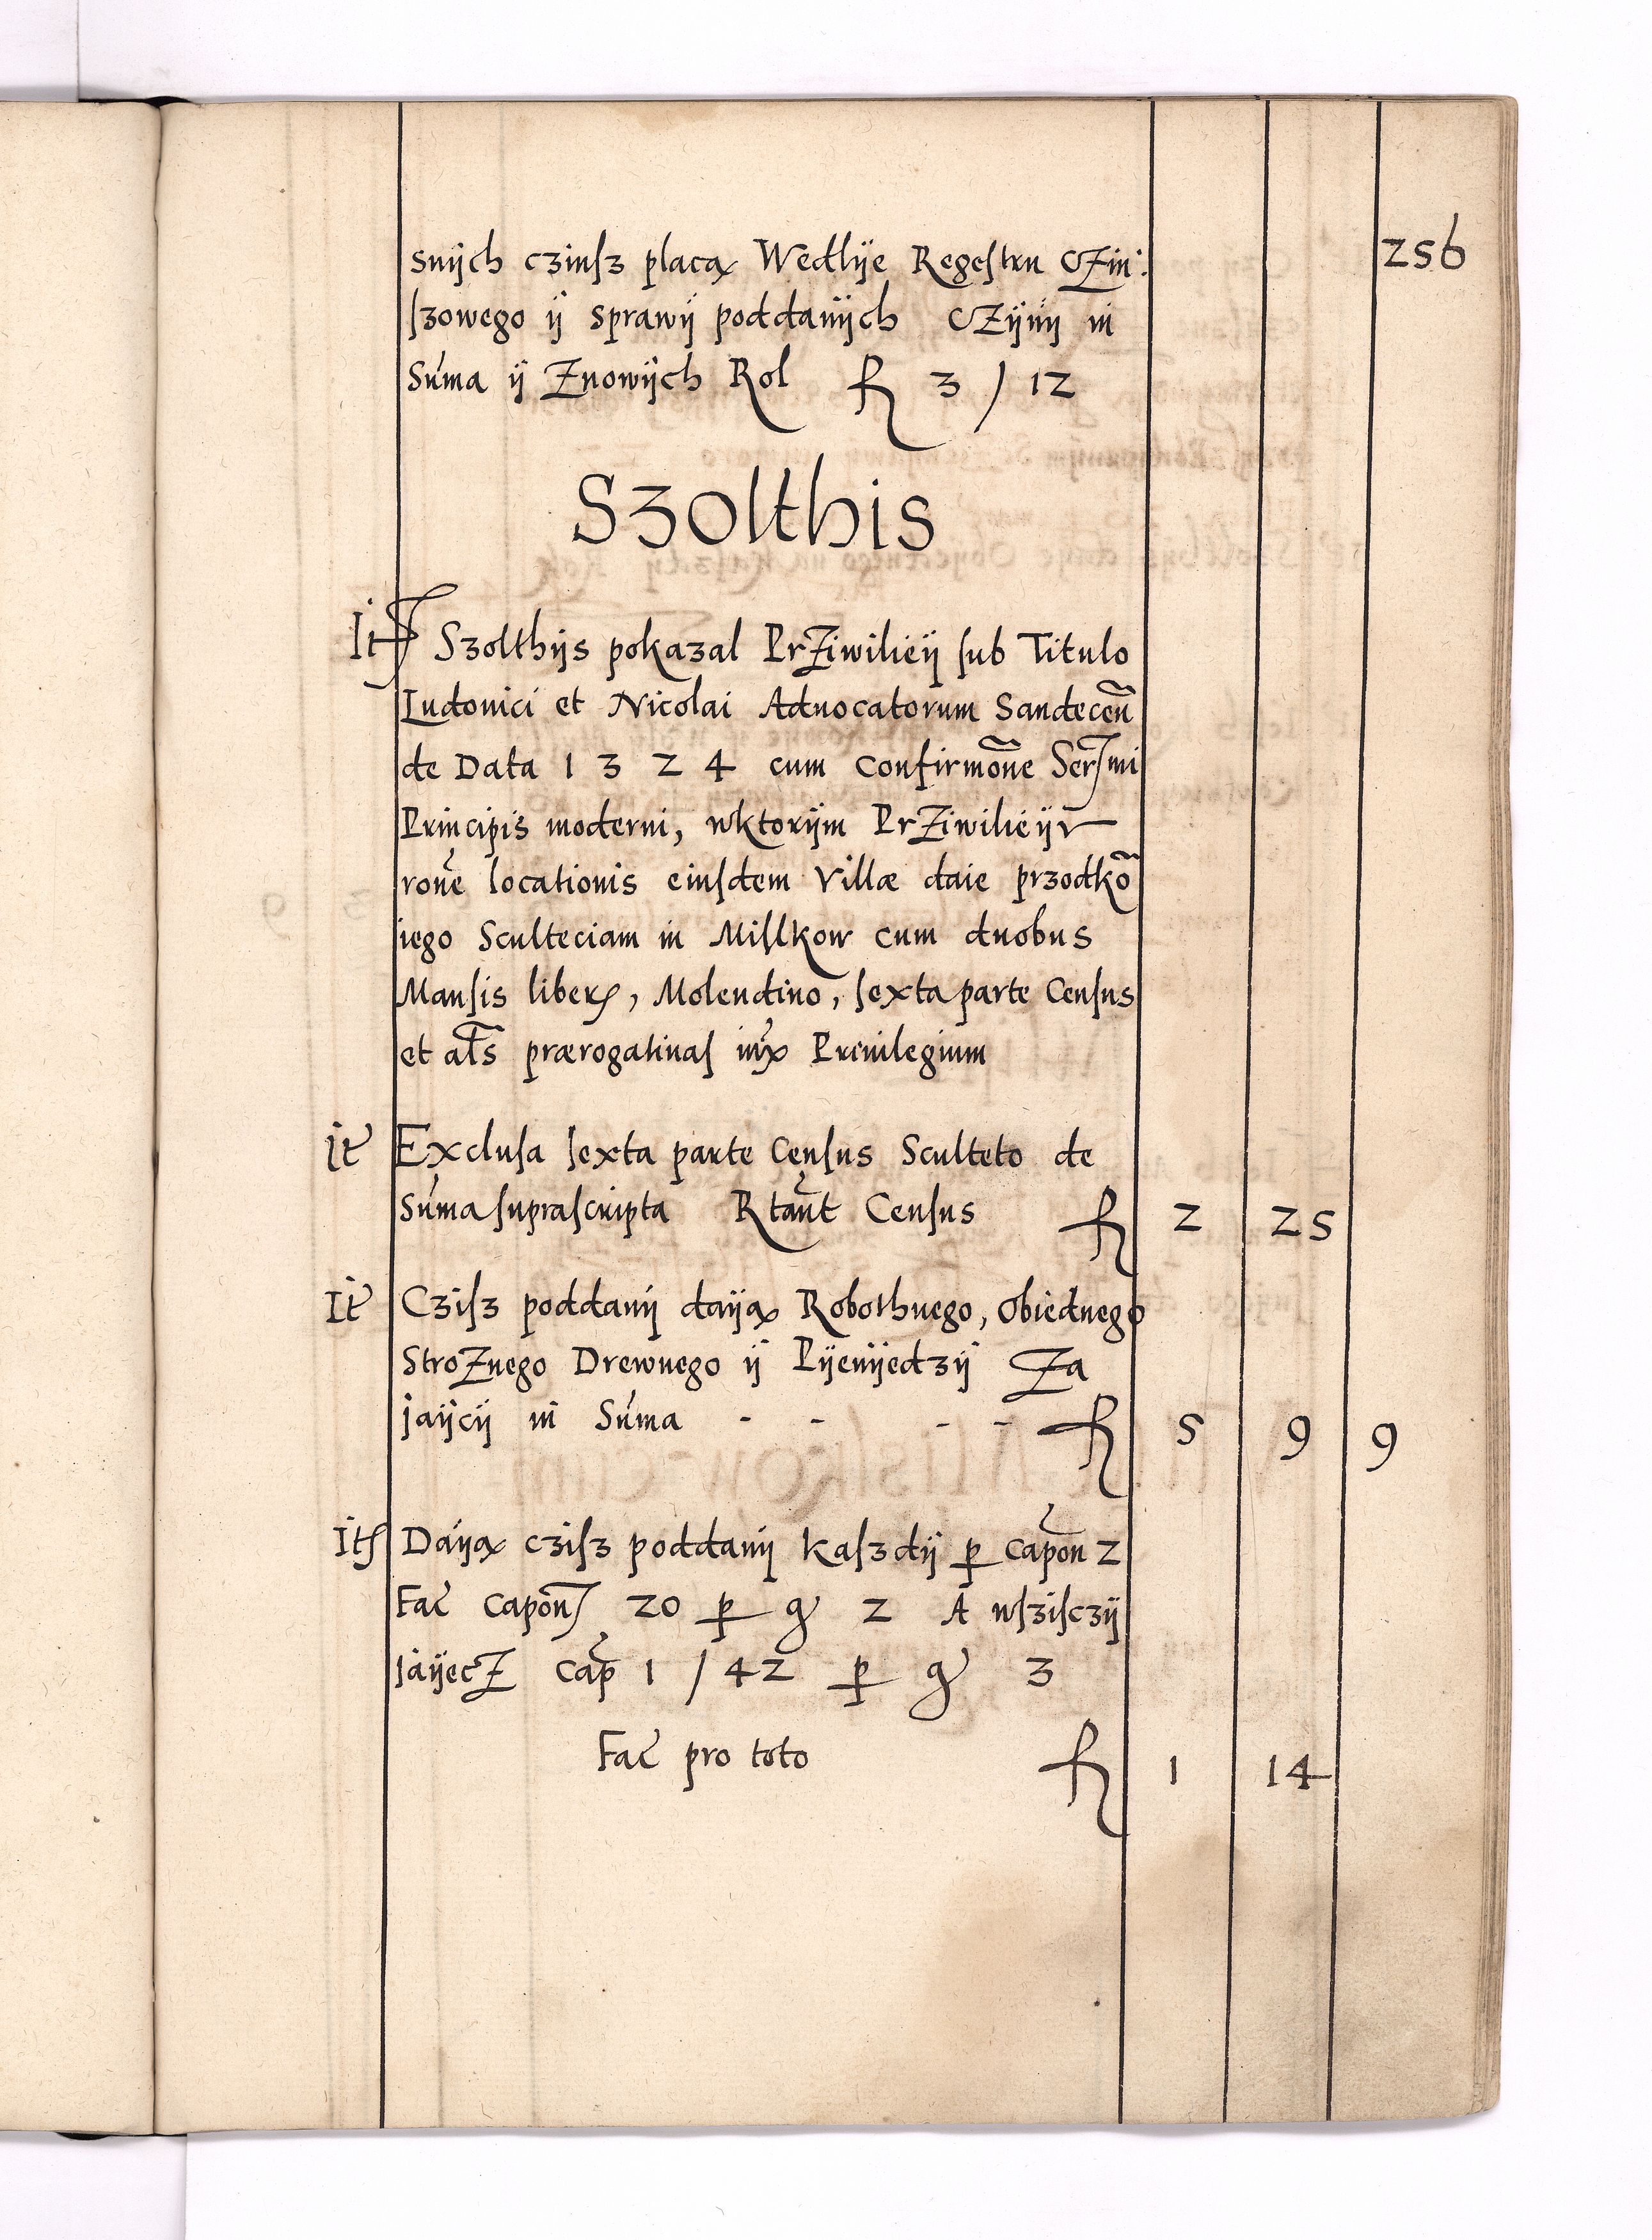 256
snÿch czinsz placą Wedlÿe Regestru CZin:
szowego ÿ sprawÿ poddanÿch CZÿnÿ in
Sum̃a ÿ Znowÿch Rol fl 3 / 12
Szolthis
It Szolthÿs pokazal PrZiwilieÿ sub Titulo
Ludouici et Nicolai Aduocatorum Sandeceñ
de Data 1 3 2 4 cum Confirmõne Sermi
Principis moderni, wktorÿm PrZiwilieÿv
roñe locationis eiusdem Villæ daie przodkõ
iego Sculteciam in Milkow cum duobus
Mansis liberis, Molendino, sexta parte Census
et als prærogatiuas iux Priuilegium
It Exclusa sexta parte Census Sculteto de
Sum̃a suprascripta Rtañt Census fl 2 25
It Czisz poddanÿ daÿą Robothnego, Obiednego
StroZnego Drewnego ÿ Pÿenÿedzÿ Za
jaÿcÿ in Sum̃a - - - - fl 5 9 9
It Daÿą czisz poddanÿ kaszdÿ p capon 2
Fac̃ capoñ 20 p gr 2 A wszisczÿ
jaÿecZ cap 1 / 42 p gr 3
Fac̃ pro toto fl 1 14